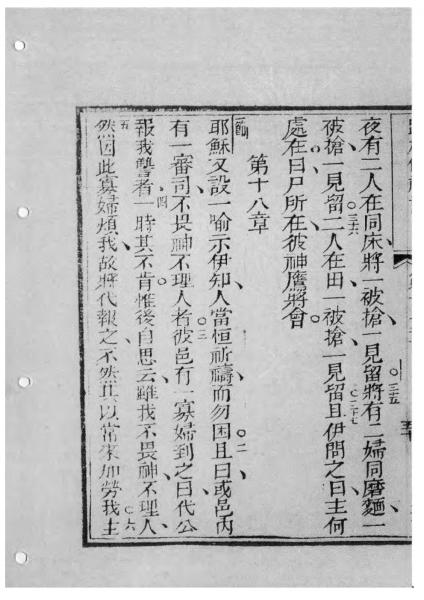 夜有二人在同床將一被搶一見留三五將有二婦同磨麵一
被搶一見留三六二人在田一被搶一見留三七且伊問之曰主何
處在曰尸所在彼神鷹將會
第十八章
耶穌又設一喻示伊知人當恒祈禱而勿困二且曰或邑內
有一審司不畏神不理人者三彼邑有一寡婦到之曰代公
報我讐者四一時其不肯惟後自思云雖我不畏神不理人
五然因此寡婦煩我故將代報之不然其以常來加勞我六主